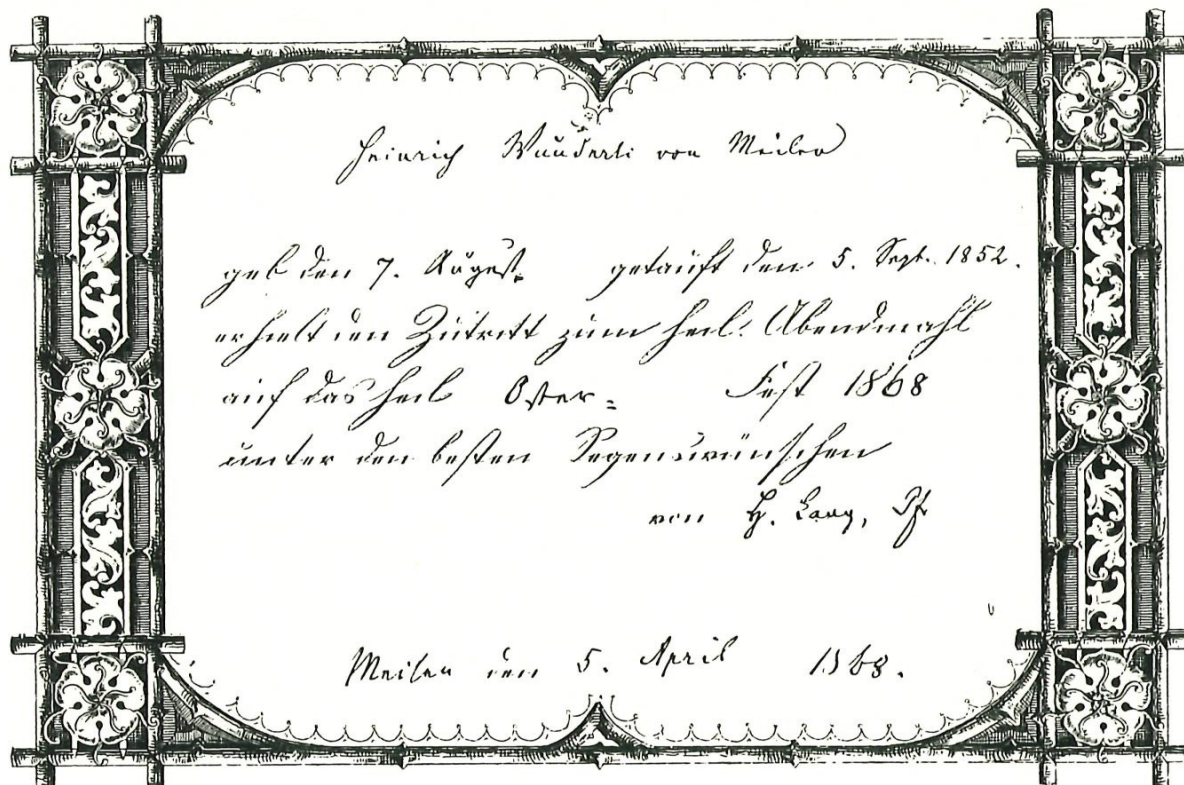 Heinrich Wunderli von Meilen
geb den 7. August. getauft den 5. Sept. 1852.
erhielt den Zutritt zum heil. Abendmahl
auf das heil Oster= Fest 1868
unter den besten Segenswünschen
von H. Lang, Pf
Meilen den 5. April 1868.